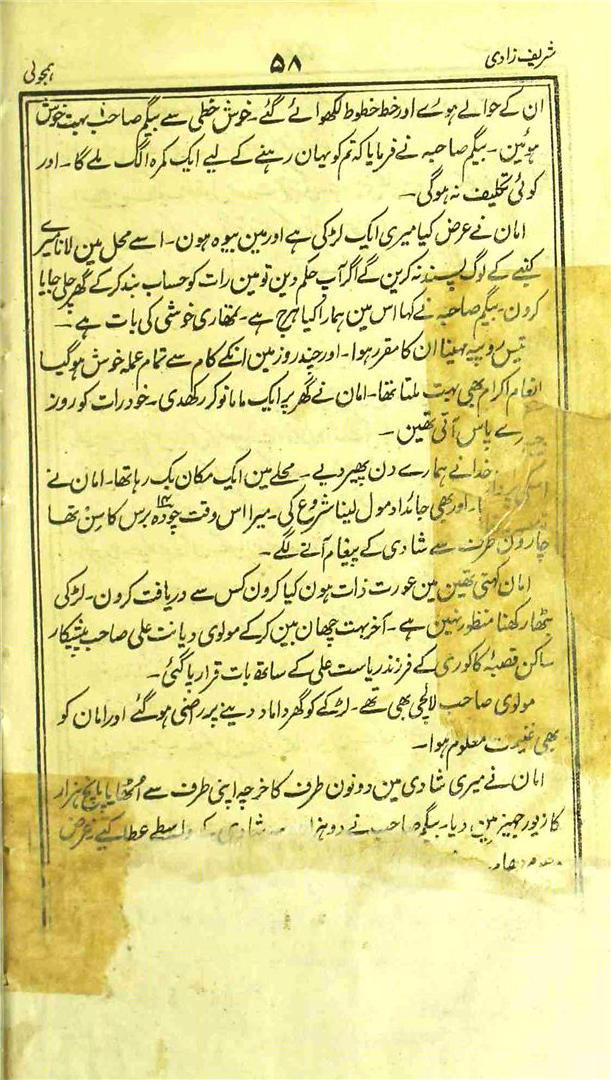 شریف زادی ۵۸ ہمجولی
ان کے حوالے ہوے اور خط خطوط لکھوائے گئے۔ خوش خطی سے بیگم صاحب بہت خوش
ہوئین۔ بیگم صاحبہ نے فرمایا کہ تم کو یہان رہنے کے لیے ایک کمرہ الگ ملے گا۔ اور
کوئی تکلیف نہ ہوگی۔
امان نے عرض کیا میری ایک لڑکی ہے اور مین بیوہ ہون۔ اسے محل مین لانا میرے
کنبے کے لوگ پسند نہ کرین گے اگر آپ حکم دین تو مین رات کو حساب بند کر کے گھر چلی جایا
کرون۔ بیگم صاحبہ نے کہا اس مین ہمارا کیا ہرج ہے۔ تمھاری خوشی کی بات ہے۔
تیس روپیہ مہینا ان کا مقرر ہوا۔ اور چند روز مین انکے کام سے تمام عملہ خوش ہو گیا
انعام اکرام بھی بہت ملتا تھا۔ امان نے گھر پر ایک ماما نوکر رکھدی۔ خود رات کو روز
میرے پاس آتی تھین۔
خدا نے ہمارے دن پھیر دیے۔ محلے مین ایک مکان بک رہا تھا۔ امان نے
اور بھی جائداد مول لینا شروع کی۔ میرا اس وقت چودہ ۱۴ برس کا سِن تھا
چارون طرف سے شادی کے پیغام آنے لگے۔
امان کہتی تھین مین عورت ذات ہون کیا کرون کس سے دریافت کرون۔ لڑکی
بٹھا رکھنا منظور نہین ہے۔ آخر بہت چھان بین کر کے مولوی دیانت علی صاحب پیشکار
ساکن قصبۂ کاکوری کے فرزند ریاست علی کے ساتھ بات قرار پا گئی۔
مولوی صاحب لالچی بھی تھے۔ لڑکے کو گھر داماد دینے پر راضی ہو گئے اور امان کو
بھی غنیمت معلوم ہوا۔
امان نے میری شادی مین دونون طرف کا خرچہ اپنی طرف سے اُٹھایا پانچ ہزار
کا زیور جہیز مین دیا۔ بیگم صاحب نے دو ہزار شادی کے واسطے عطا کیے غرض